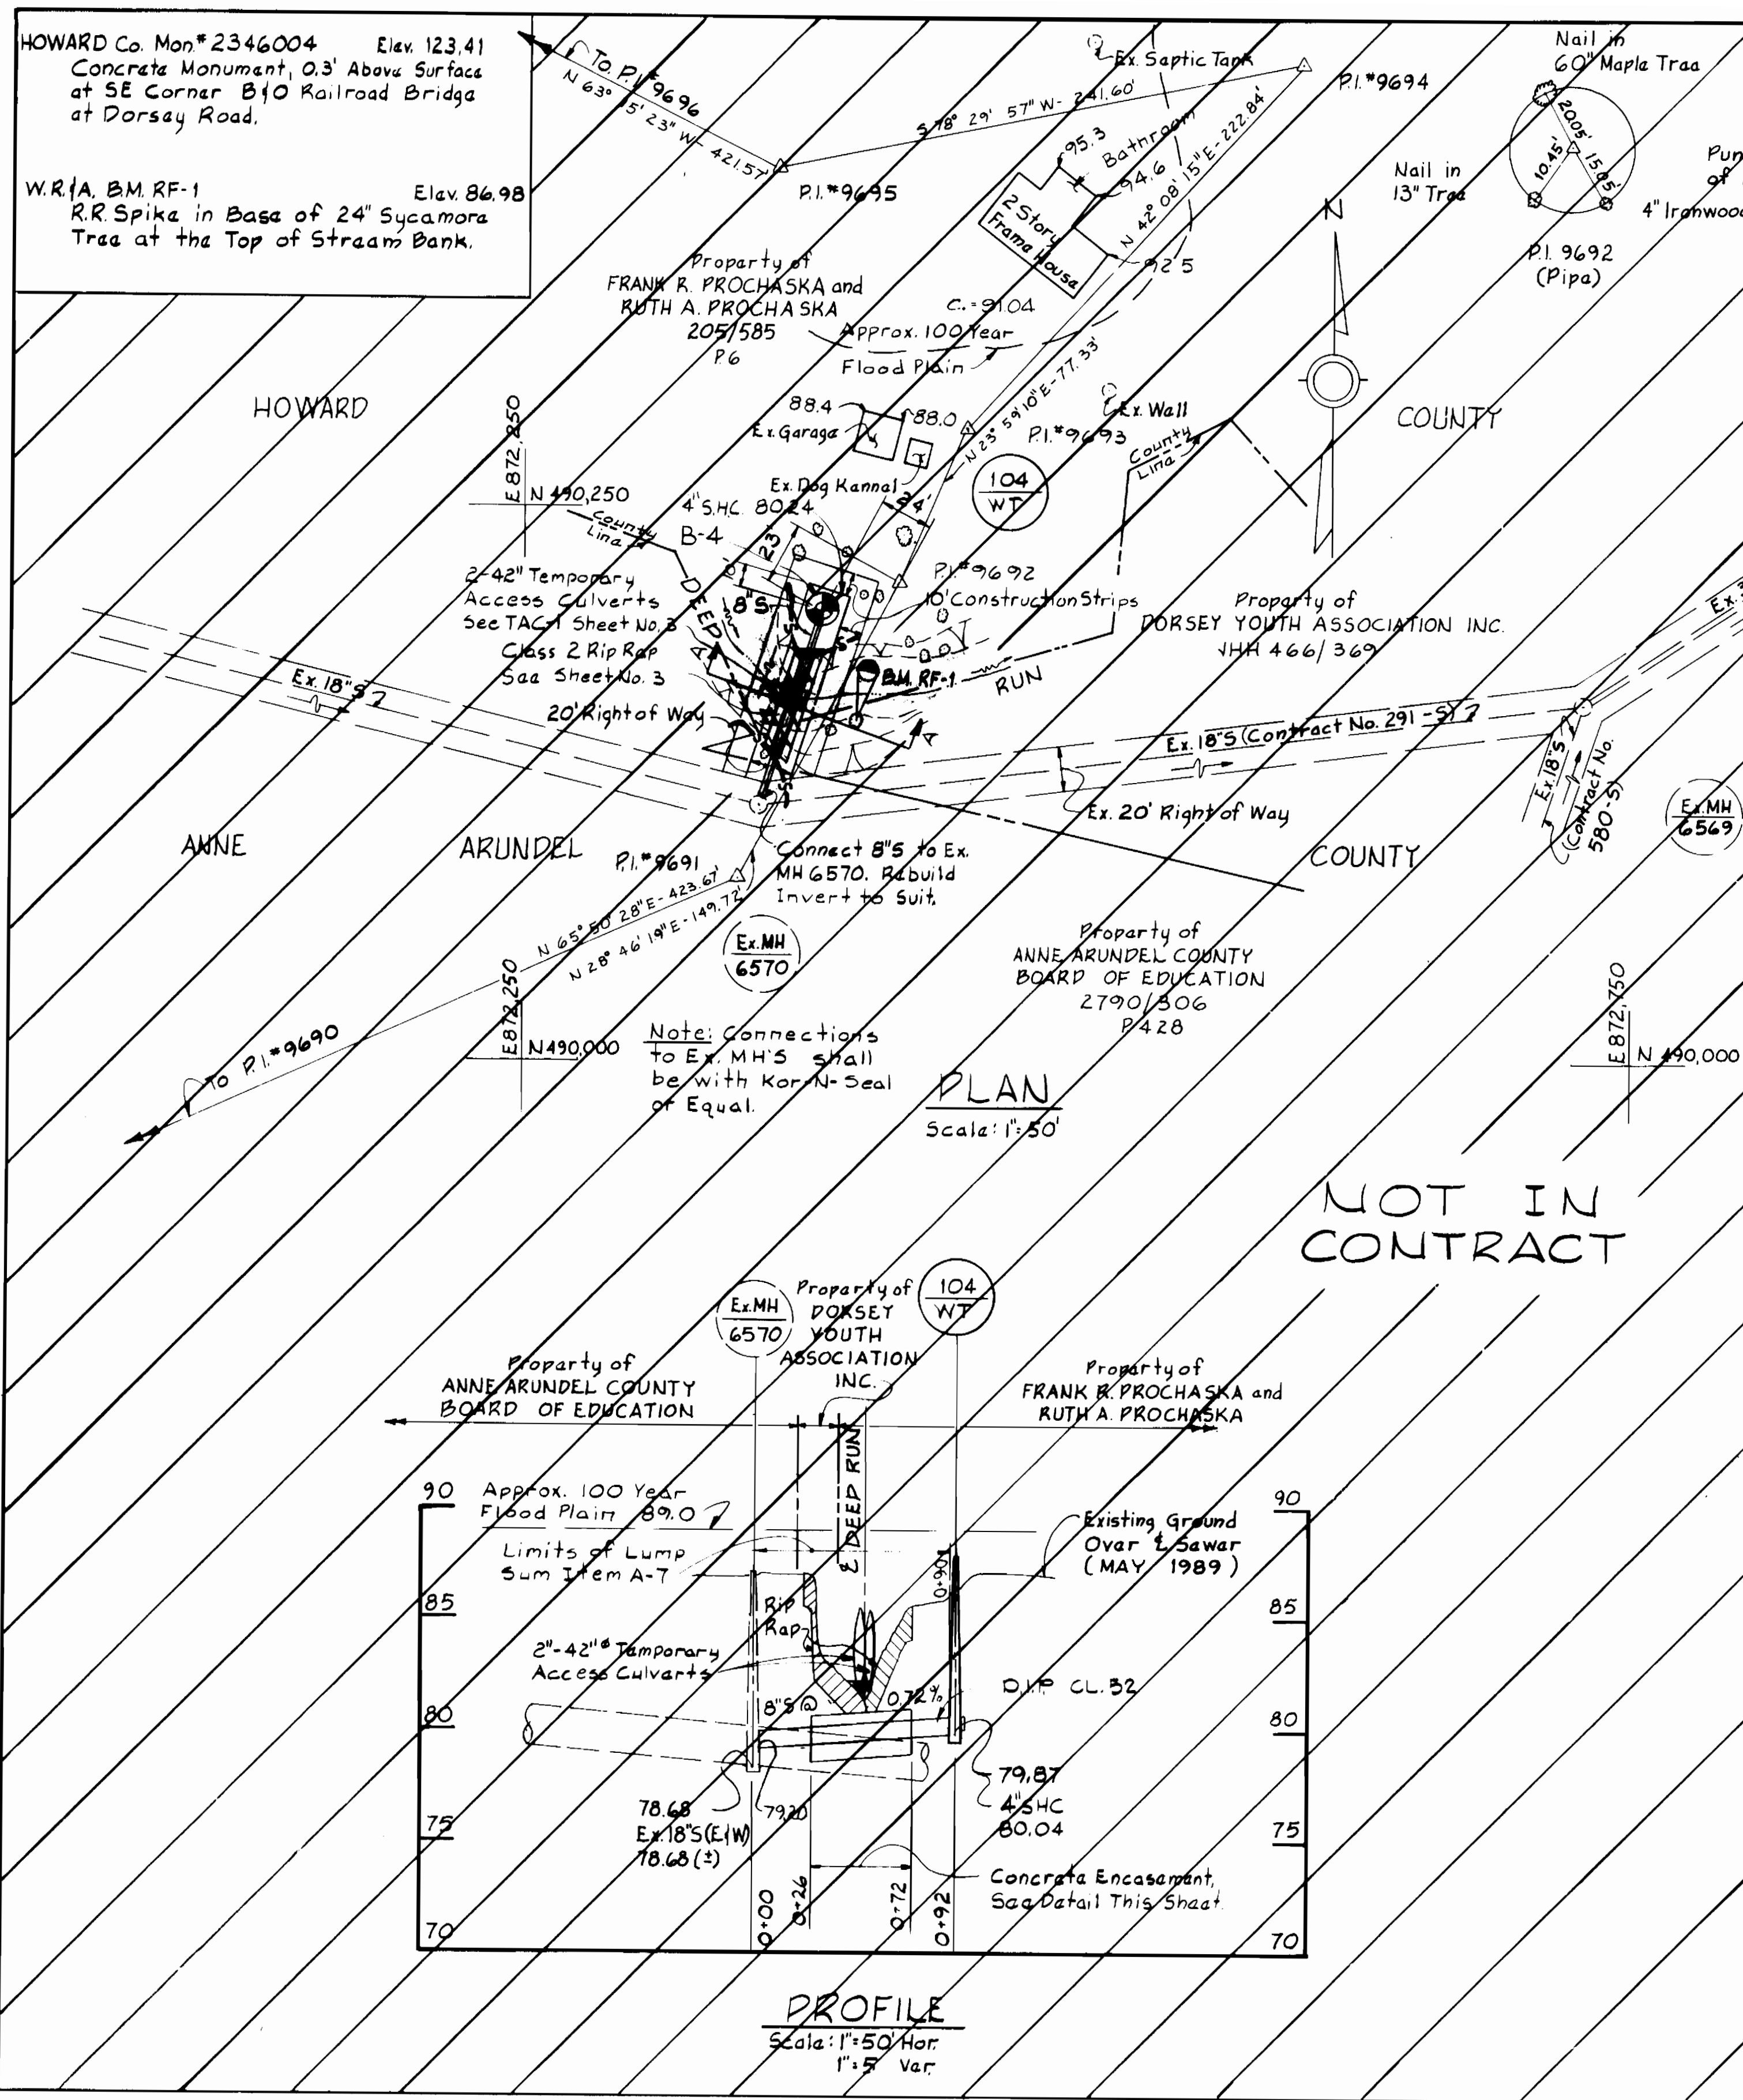 HOWARD Co. Mon.# 2346004 Elev. 123.41
Concrete Monument, 0.3' Above Surface
at SE Corner B&O Railroad Bridge
at Dorsey Road.
W.R.&A. B.M. RF-1 Elev. 86.98
R.R. Spike in Base of 24" Sycamore
Tree at the Top of Stream Bank.
To P.I.#9696
N 63° 5' 23" W - 421.57'
P.I.#9695
S 78° 29' 57" W - 241.60'
Ex. Septic Tank
P.I.#9694
Nail in
60" Maple Tree
20.05'
10.45'
15.05'
Nail in
13" Tree
Pun
of
4" Ironwood
P.I. 9692
(Pipe)
N
95.3
Bathroom
94.6
N 42° 08' 15" E - 222.84'
2 Story
Frame House
92.5
Property of
FRANK R. PROCHASKA and
RUTH A. PROCHASKA
205/585
P.6
C. = 91.04
Approx. 100 Year
Flood Plain
N 23° 59' 10" E - 77.33'
HOWARD
COUNTY
88.4
88.0
Ex. Garage
Ex. Well
P.I.#9693
County
Line
E 872,250
N 490,250
Ex. Dog Kennel
24'
104
WT
4" S.H.C. 80.24
B-4
23'
County
Line
DEEP
2-42" Temporary
Access Culverts
See TAC-1 Sheet No. 3
8"S
Class 2 Rip Rap
See Sheet No. 3
20' Right of Way
P.I.#9692
10' Construction Strips
B.M. RF-1
RUN
A
A
Property of
DORSEY YOUTH ASSOCIATION INC.
JHH 466/369
Ex. 18"S
Ex. 18"S (Contract No. 291-S)
Ex.
Ex. 18"S
(Contract No.
580-S)
Ex. 20' Right of Way
Ex.MH
6569
ANNE
ARUNDEL
COUNTY
P.I.#9691
N 65° 50' 28" E - 423.67'
N 28° 46' 19" E - 149.72'
Connect 8"S to Ex.
MH 6570. Rebuild
Invert to Suit.
Ex.MH
6570
Property of
ANNE ARUNDEL COUNTY
BOARD OF EDUCATION
2790/306
P.428
E 872,250
N 490,000
E 872,750
N 490,000
To P.I.#9690
Note: Connections
to Ex. MH'S shall
be with Kor-N-Seal
or Equal.
PLAN
Scale: 1"=50'
NOT IN
CONTRACT
Ex.MH
6570
Property of
DORSEY
YOUTH
ASSOCIATION
INC.
104
WT
Property of
ANNE ARUNDEL COUNTY
BOARD OF EDUCATION
Property of
FRANK R. PROCHASKA and
RUTH A. PROCHASKA
℄ DEEP RUN
90
Approx. 100 Year
Flood Plain 89.0
90
Existing Ground
Over ℄ Sewer
(MAY 1989)
Limits of Lump
Sum Item A-7
0+90
85
Rip
Rap
85
2"-42"ø Temporary
Access Culverts
8"S @ 0.72%
D.I.P. CL. 52
80
80
79.87
4"SHC
80.04
78.68
Ex. 18"S (E&W)
78.68 (±)
79.20
75
75
Concrete Encasement,
See Detail This Sheet.
0+00
0+26
0+72
0+92
70
70
PROFILE
Scale: 1"=50' Hor.
1"=5' Ver.